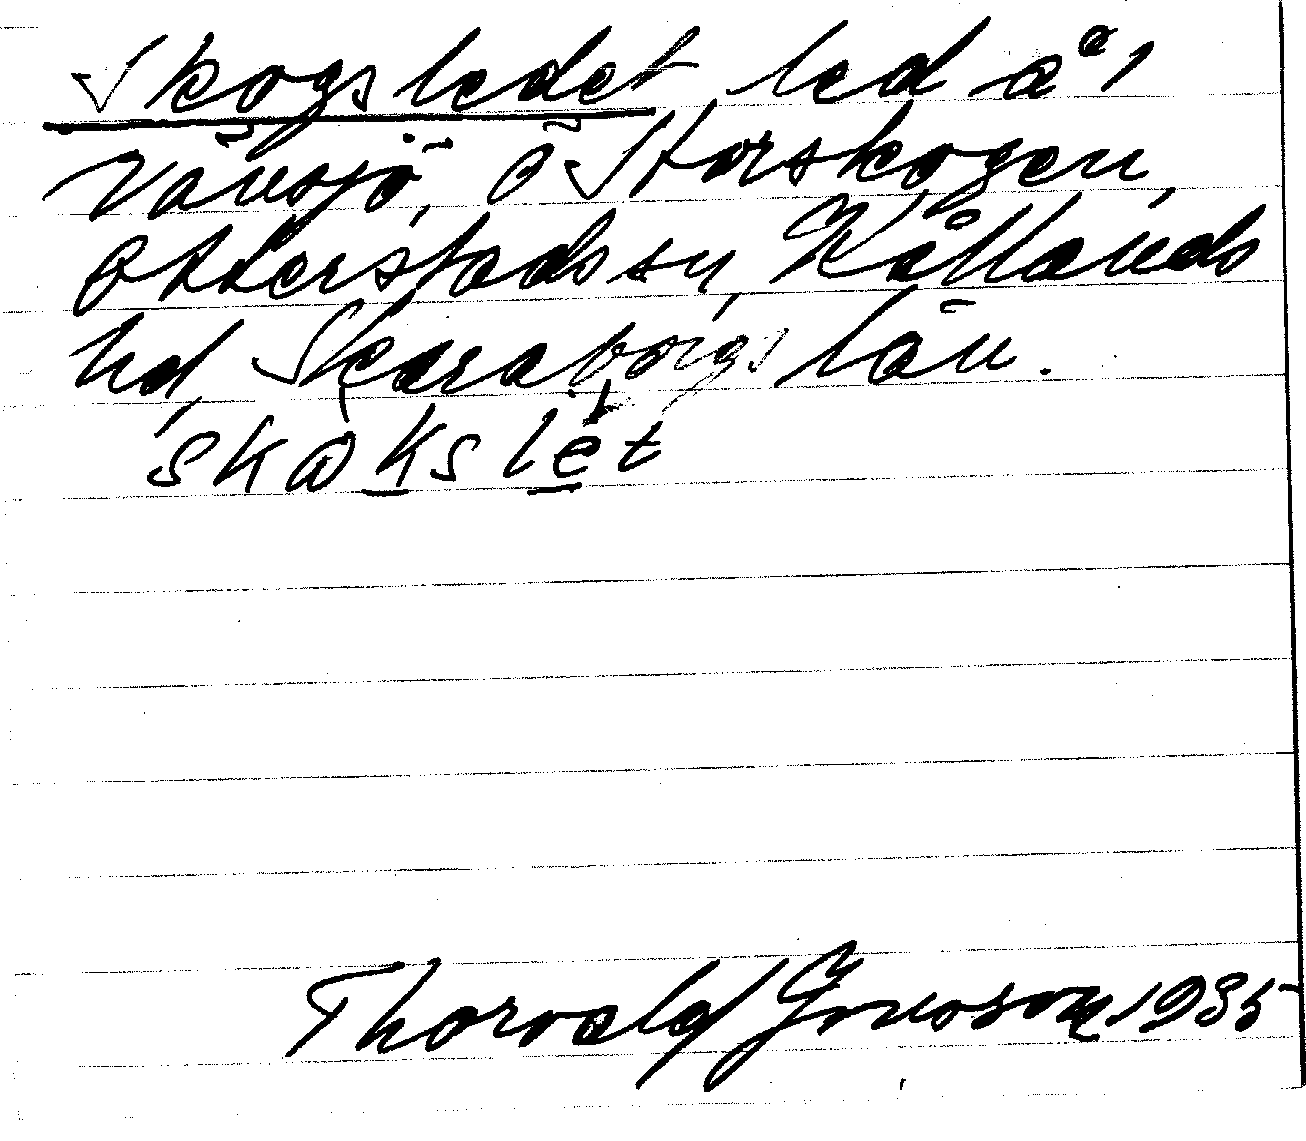 Skogsledet, led å 1
Vänsjö, Ö Storskogen,
Otterstads sn, Kållands
hd, Skaraborgs län.
skɷkslèt
Thorvald Jonsson, 1935